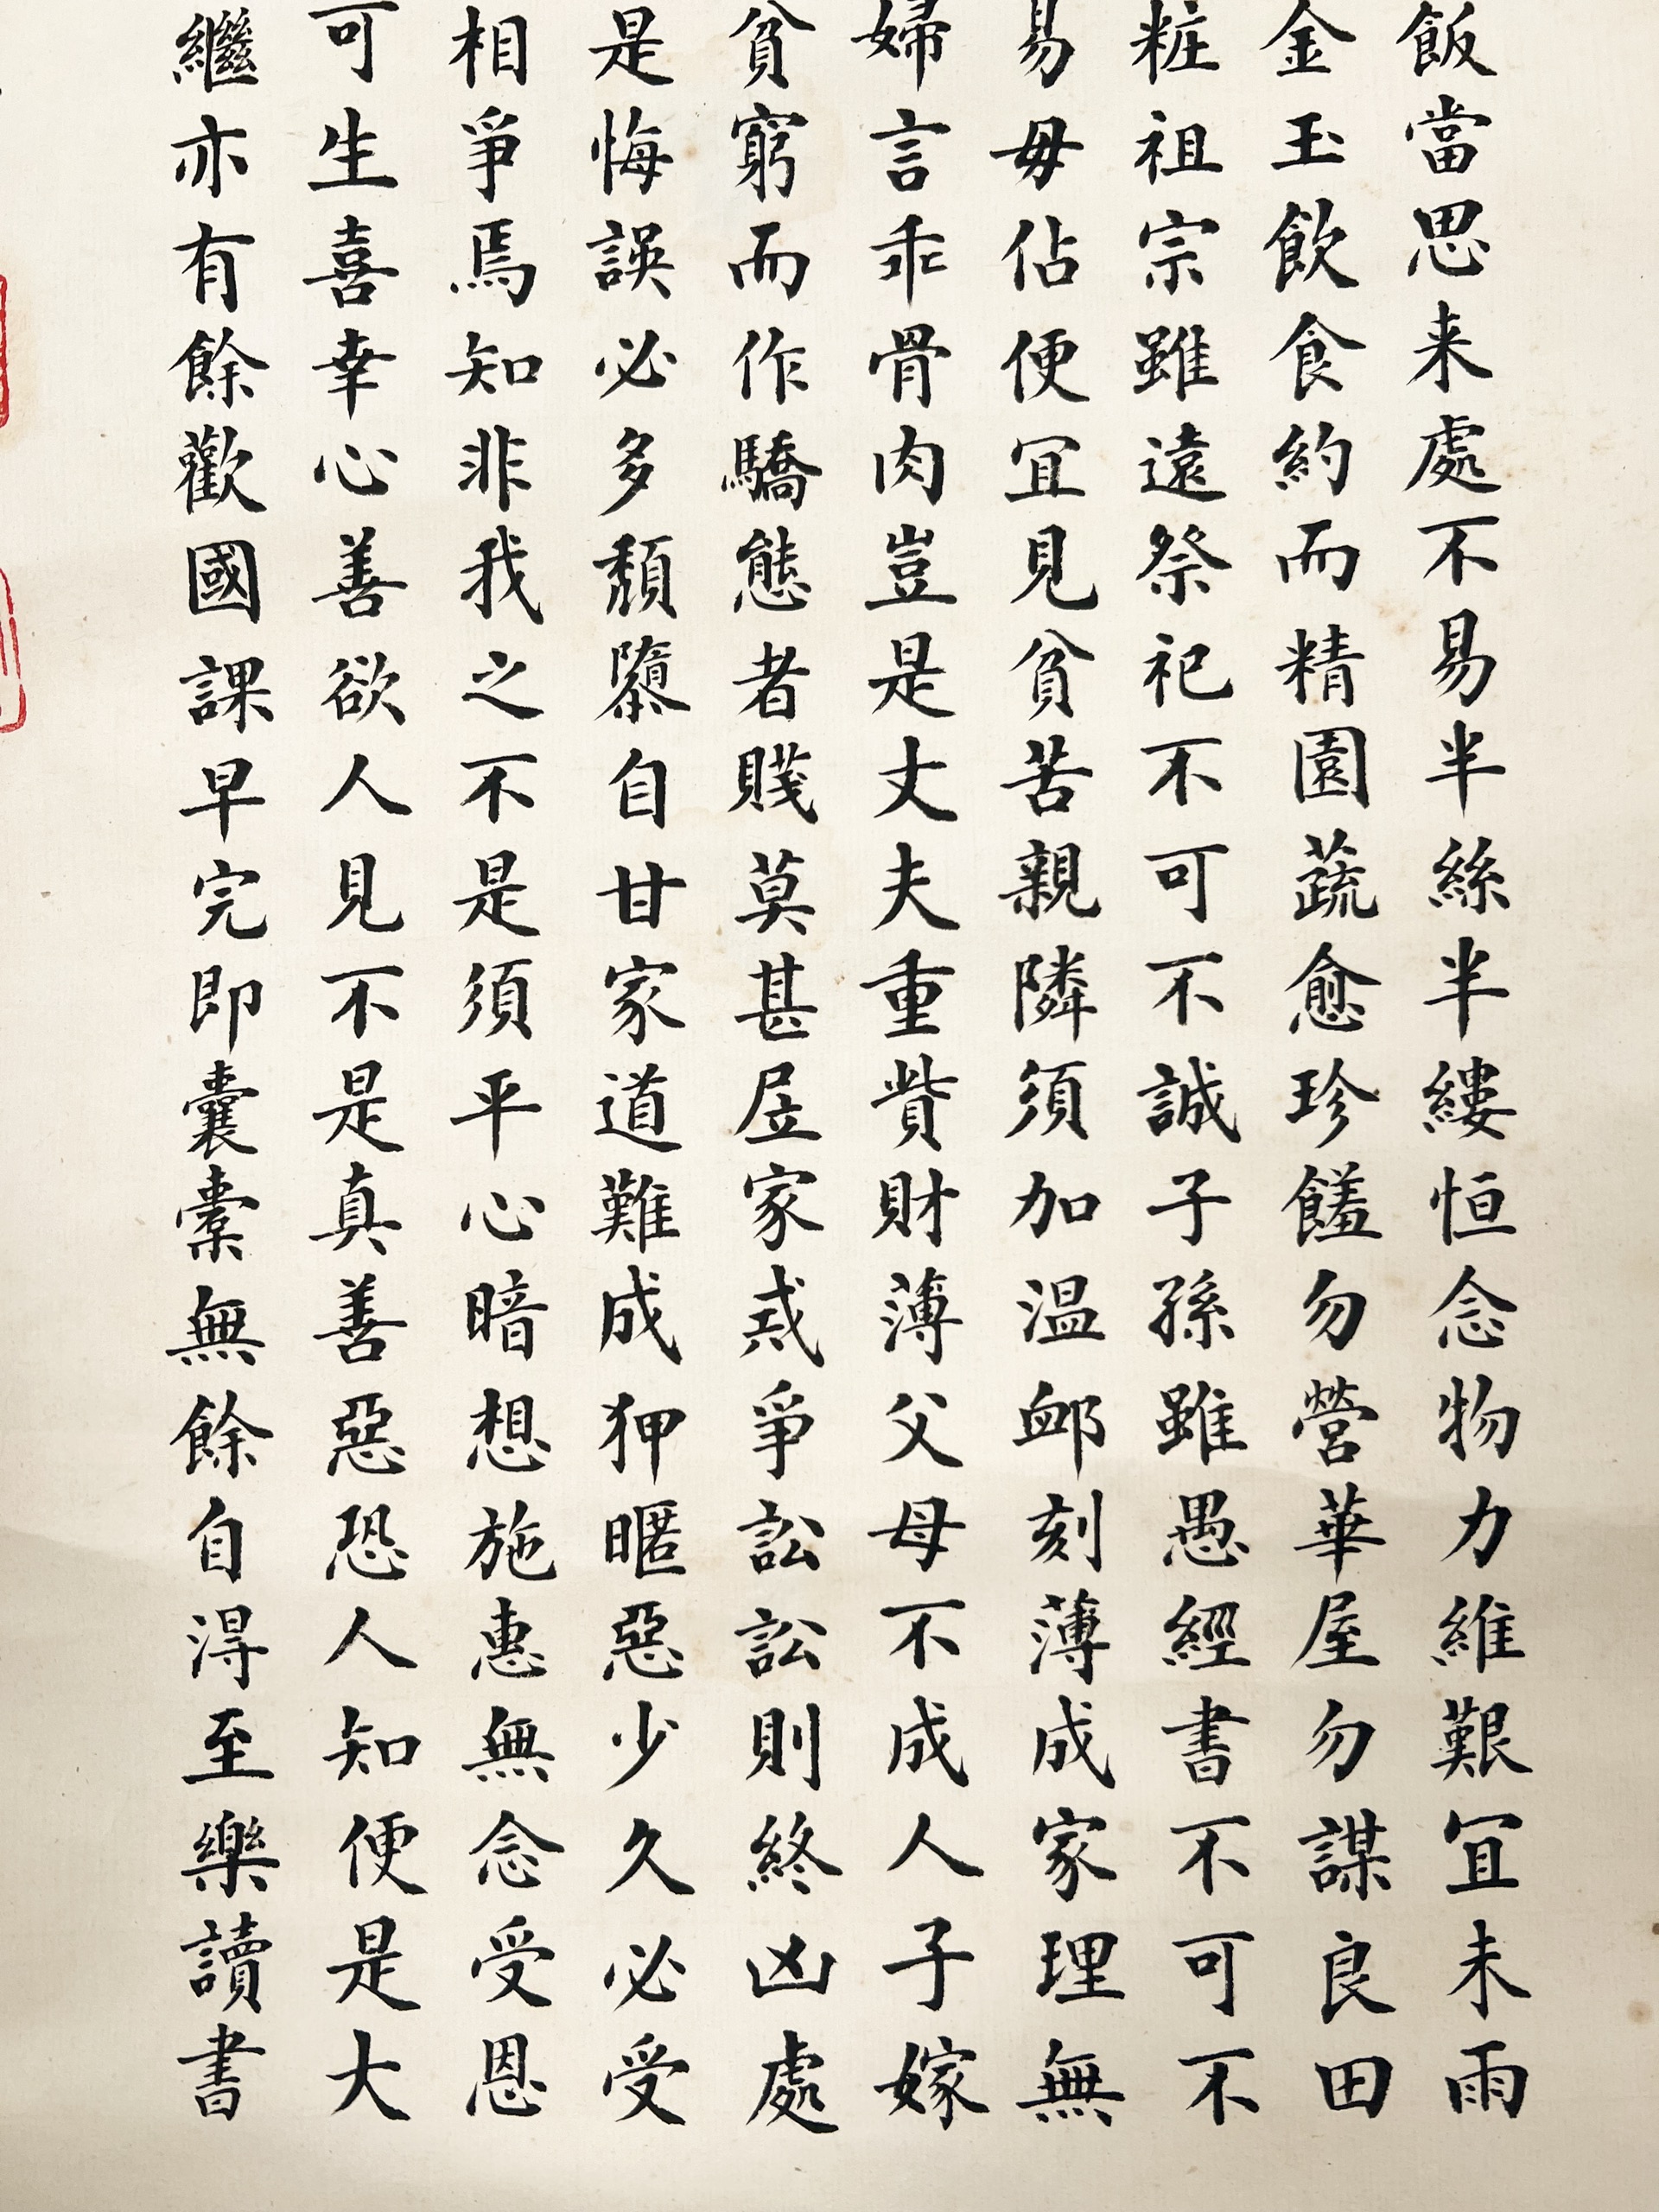 飯當思来處不易半絲半縷恒念物力維艱冝未雨
金玉飲食約而精園蔬愈珍饈勿營華屋勿謀良田
粧祖宗雖遠祭祀不可不誠子孫雖愚經書不可不
易毋佔便冝見貧苦親隣須加温卹刻薄成家理無
婦言乖骨肉豈是丈夫重貲財薄父母不成人子嫁
貧窮而作驕態者賤莫甚居家戒爭訟訟則終凶處
是悔誤必多頹隳自甘家道難成狎暱惡少久必受
相爭焉知非我之不是須平心暗想施惠無念受恩
可生喜幸心善欲人見不是真善惡恐人知便是大
繼亦有餘歡國課早完即囊橐無餘自得至樂讀書